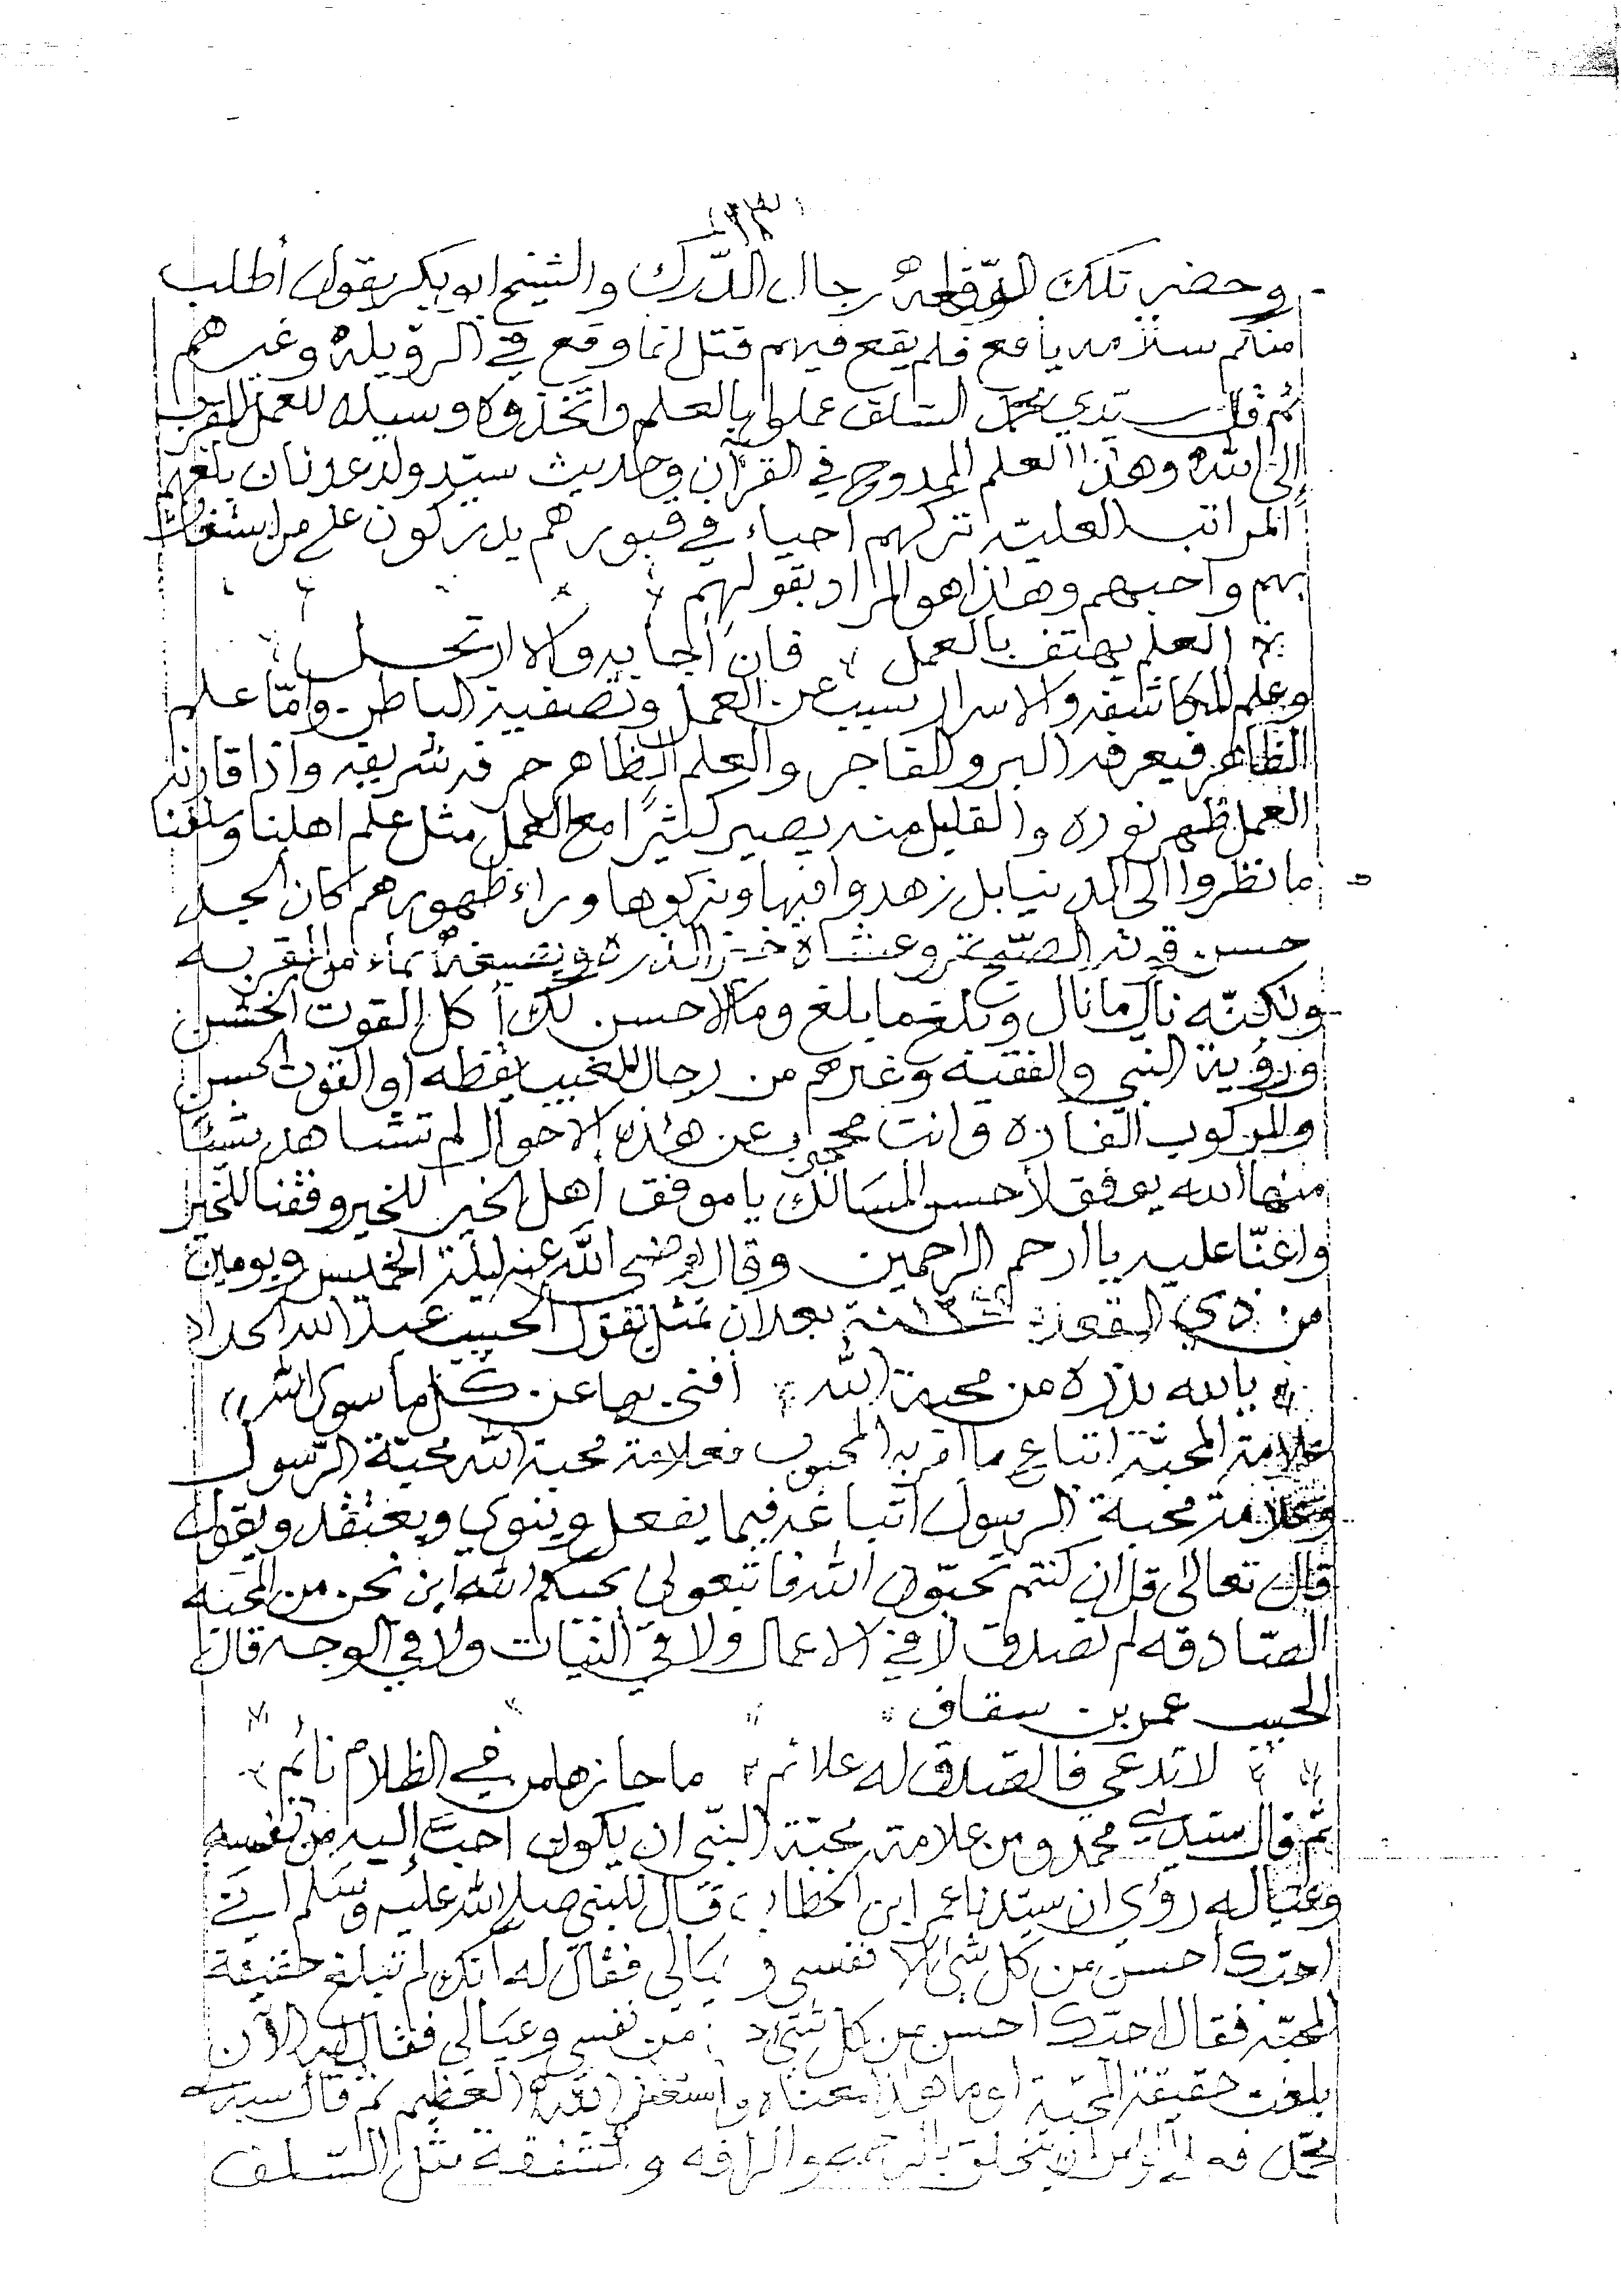 ١٣
وحضر تلك الوقعه رجال الدّرك والشيخ ابوبكر يقول أطلب
منكم سلامه يافع فلم يقع فيهم قتل انما وقع في الرويله وغيرهم
ثم قال سيدي محمد السلف عملوا بالعلم واتخذوه وسيله للعمل المقرب
إلى الله وهذا العلم الممدوح في القرآن وحديث سيد ولد عدنان بلغهم
المراتب العليه تركهم احياء في قبورهم يدركون على من استغاث
بهم وأحبهم وهذا هو المراد بقولهم
العلم يهتف بالعمل فان أجابه والا ارتحل
وعلم المكاشفه والاسرار تسبب عن العمل وتصفية الباطن وامّا علم
الظاهر فيعرفه البر والفاجر والعلم الظاهر حرفه شريفه واذا قارنه
العمل ظهر نوره والقليل منه يصير كثيرًا مع العمل مثل علم اهلنا وسلفنا
ما نظروا الى الدنيا بل زهدوا فيها وتركوها وراء ظهورهم كان الجد
حسن وعشاه خبز الذره بماء من القربه
ولكنّه نال مانال وبلغ مابلغ وما الاحسن لك أكل القوت الخشن
ورؤية النبي والفقيه وغيرهم من رجال الغيب يقظه أو القوت الحسن
والمركوب الفاره وانت محجوب عن هذه الاحوال لم تشاهد شيئًا
منها الله يوفق لأحسن المسالك ياموفق أهل الخير للخير وفقنا للخير
واعنّا عليه ياارحم الراحمين وقال رضي الله عنه ليلة الخميس ويومين
من ذي القعدة سنة بعد ان تمثل بقول الحبيب عبدالله الحداد
يالله بذره من محبة الله أفنى بها عن كل ما سوى الله
علامة المحبّة اتباع ما امر به المحبوب فعلامة محبة الله محبّة الرّسول
وعلامة محبة الرسول اتباعه فيما يفعل وينوي ويعتقد ويقول
قال تعالى قل ان كنتم تحبّون الله فاتبعوني يحببكم الله اين نحن من المحبّه
الصّادقه لم نصدق لا في الاعمال ولا في النيّات ولا في الوجه قال
الحبيب عمر بن سقاف
لاتدعي فالصدق له علائم ماحازها من في الظلام نائم
ثمّ قال سيدي محمد ومن علامة محبّة النبّي ان يكون احبّ إليه من نفسه
وعياله روي ان سيدنا عمر ابن الخطاب قال للنبي صلى الله عليه وسلم انّي
احبّك احسن من كل شي الا نفسي وعيالي فقال له انك لم تبلغ حقيقة
المحبّه فقال احبّك احسن من كل شي من نفسي وعيالي فقال له الآن
بلغت حقيقة المحبّه او ما هذا معناه واستغفر الله العظيم ثم قال سيدي
محمد بالرحمه والرافه والشفقة مثل السّلف